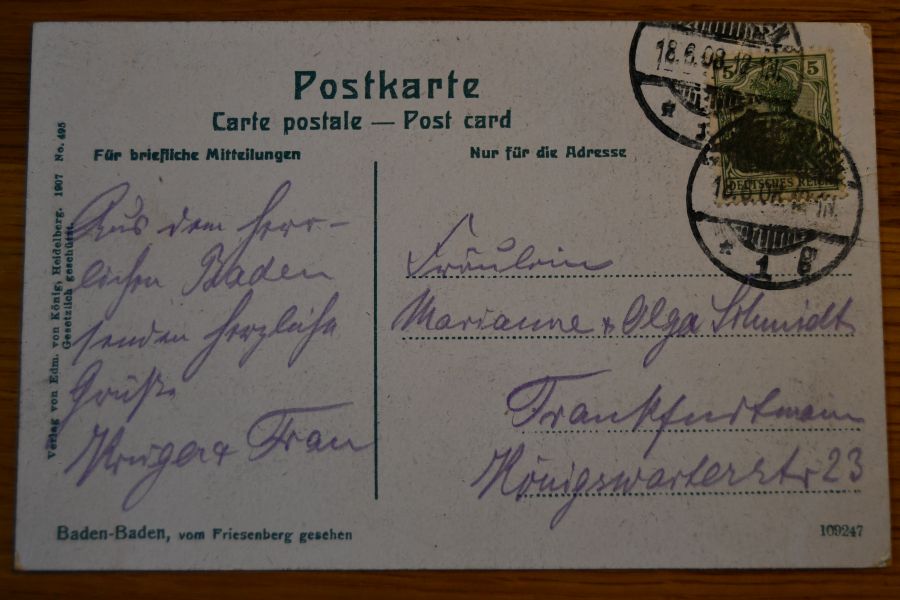 Postkarte
Carte postale — Post card
Für briefliche Mitteilungen
Nur für die Adresse
18.6.08
5
5
DEUTSCHES REICH
* 1 g
Verlag von Edm. von König, Heidelberg. 1907 No. 495
Gesetzlich geschützt.
Aus dem herr-
lichen Baden
senden herzliche
Grüße
& Frau
Fräulein
Marianne & Olga Schmidt
Frankfurtmain
Königswarterstr 23
Baden-Baden, vom Friesenberg gesehen
109247